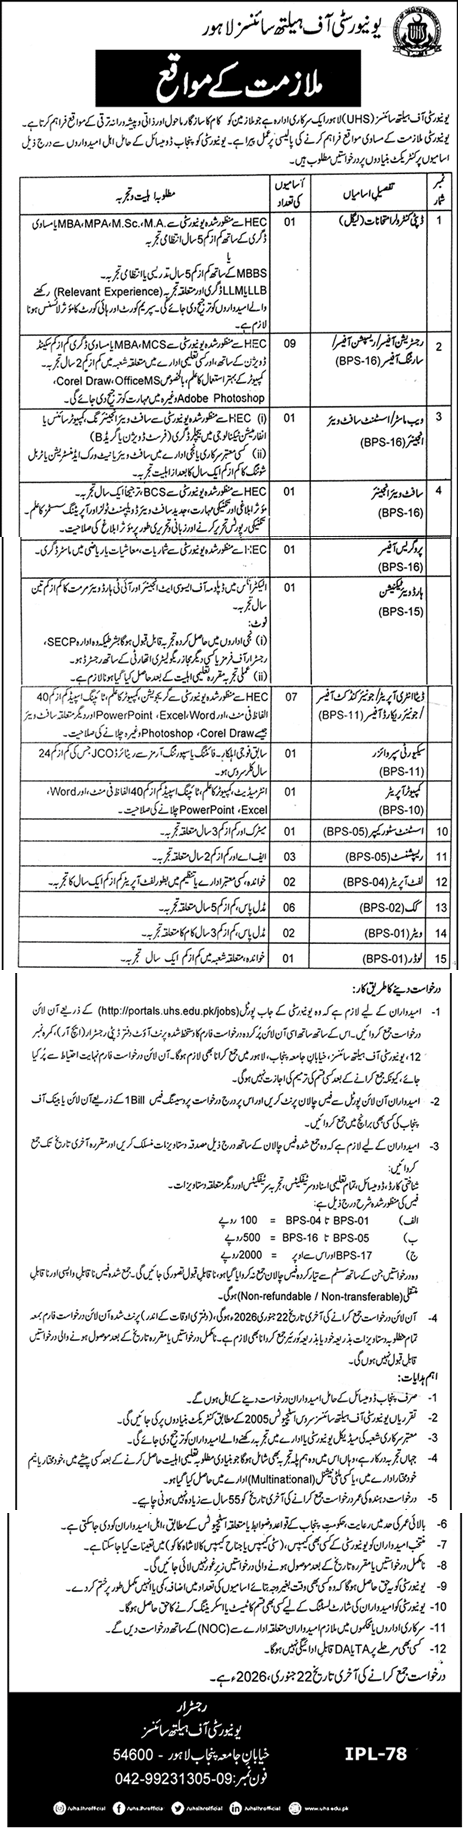 یونیورسٹی آف ہیلتھ سائنسز لاہور
ملازمت کے مواقع
یونیورسٹی آف ہیلتھ سائنسز (UHS) لاہور ایک سرکاری ادارہ ہے جو ملازمین کو کام کا سازگار ماحول اور ذاتی و پیشہ ورانہ ترقی کے مواقع فراہم کرتا ہے۔
یونیورسٹی ملازمت کے مساوی مواقع فراہم کرنے کی پالیسی پر عمل پیرا ہے۔ یونیورسٹی کو پنجاب ڈومیسائل کے حامل اہل امیدواروں سے درج ذیل
اسامیوں پر کنٹریکٹ بنیادوں پر درخواستیں مطلوب ہیں۔
نمبر شمار | تفصیل اسامیاں | اسامیوں کی تعداد | مطلوبہ اہلیت و تجربہ
1 | ڈپٹی کنٹرولر امتحانات (لیگل) | 01 | HEC سے منظور شدہ یونیورسٹی سے MBA, MPA, M.Sc., M.A. یا مساوی
ڈگری کے ساتھ کم از کم 5 سال انتظامی تجربہ
یا
MBBS کے ساتھ کم از کم 5 سال تدریسی یا انتظامی تجربہ۔
LLB یا LLM ڈگری اور متعلقہ تجربہ (Relevant Experience) رکھنے
والے امیدواروں کو ترجیح دی جائے گی۔ سپریم کورٹ اور ہائی کورٹ کا مؤثر لائسنس ہونا
لازم ہے۔
2 | رجسٹریشن آفیسر/ریسپشن آفیسر/
سارٹنگ آفیسر (BPS-16) | 09 | HEC سے منظور شدہ یونیورسٹی سے MBA، MCS یا مساوی ڈگری کم از کم سیکنڈ
ڈویژن کے ساتھ، اور کسی تعلیمی ادارے میں متعلقہ شعبہ میں کم از کم 2 سال تجربہ۔
کمپیوٹر کے بہتر استعمال کا علم، بالخصوص Corel Draw، Office MS،
Adobe Photoshop وغیرہ میں مہارت کو ترجیح دی جائے گی۔
3 | ویب ماسٹر/اسسٹنٹ سافٹ ویئر
انجینئر (BPS-16) | 01 | (i) HEC سے منظور شدہ یونیورسٹی سے سافٹ ویئر انجینئرنگ، کمپیوٹر سائنس یا
انفارمیشن ٹیکنالوجی میں بیچلر ڈگری (فرسٹ ڈویژن یا گریڈ B)
(ii) کسی معتبر سرکاری یا نجی ادارے میں سافٹ ویئر یا نیٹ ورک ایڈمنسٹریشن یا ٹربل
شوٹنگ کا کم از کم ایک سال کا بعد از اہلیت تجربہ۔
4 | سافٹ ویئر انجینئر
(BPS-16) | 01 | HEC سے منظور شدہ یونیورسٹی سے BCS، ترجیحاً ایک سال تجربہ۔
مؤثر ابلاغی اور تکنیکی مہارت، جدید سافٹ ویئر ڈویلپمنٹ ٹولز اور آپریٹنگ سسٹمز کا علم،
تکنیکی رپورٹس تحریر کرنے اور زبانی و تحریری طور پر مؤثر ابلاغ کی صلاحیت۔
پروگریس آفیسر
(BPS-16) | 01 | HEC سے منظور شدہ یونیورسٹی سے شماریات، معاشیات یا ریاضی میں ماسٹر ڈگری۔
ہارڈ ویئر ٹیکنیشن
(BPS-15) | 01 | الیکٹرانکس میں ڈپلومہ آف ایسوسی ایٹ انجینئر اور آئی ٹی ہارڈ ویئر مرمت کا کم از کم تین
سال تجربہ۔
نوٹ:
(i) نجی اداروں میں حاصل کردہ تجربہ قابل قبول ہوگا بشرطیکہ وہ ادارہ SECP،
رجسٹرار آف فرمز یا کسی دیگر مجاز ریگولیٹری اتھارٹی کے ساتھ رجسٹرڈ ہو۔
(ii) عملی تجربہ مقررہ تعلیمی اہلیت کے بعد حاصل کیا گیا ہونا لازم ہے۔
ڈیٹا انٹری آپریٹر/جونیئر کنڈکٹ آفیسر
/جونیئر ریکارڈ آفیسر (BPS-11) | 07 | HEC سے منظور شدہ یونیورسٹی سے گریجویشن، کمپیوٹر کا علم، ٹائپنگ اسپیڈ کم از کم 40
الفاظ فی منٹ، اور Word، Excel، PowerPoint اور دیگر متعلقہ سافٹ ویئر
جیسے Corel Draw، Photoshop وغیرہ چلانے کی صلاحیت۔
سیکیورٹی سپروائزر
(BPS-11) | 01 | سابق فوجی اہلکار۔ فائٹنگ یا سپورٹنگ آرمز سے ریٹائرڈ JCO جس کی کم از کم 24
سال کلر سروس ہو۔
کمپیوٹر آپریٹر
(BPS-10) | 01 | انٹرمیڈیٹ، کمپیوٹر کا علم، ٹائپنگ اسپیڈ کم از کم 40 الفاظ فی منٹ، اور Word،
Excel، PowerPoint چلانے کی صلاحیت۔
10 | اسسٹنٹ سٹور کیپر (BPS-05) | 01 | میٹرک اور کم از کم 3 سال متعلقہ تجربہ۔
11 | ریسپشنسٹ (BPS-05) | 03 | ایف اے اور کم از کم 2 سال متعلقہ تجربہ۔
12 | لفٹ آپریٹر (BPS-04) | 02 | خواندہ، کسی معتبر ادارے یا تنظیم میں بطور لفٹ آپریٹر کم از کم ایک سال کا تجربہ۔
13 | کک (BPS-02) | 06 | مڈل پاس، کم از کم 5 سال متعلقہ تجربہ۔
14 | ویٹر (BPS-01) | 02 | مڈل پاس، کم از کم 3 سال کام کا متعلقہ تجربہ۔
15 | لوڈر (BPS-01) | 01 | خواندہ، متعلقہ شعبہ میں کم از کم ایک سال تجربہ۔
درخواست دینے کا طریق کار:
1- امیدواران کے لیے لازم ہے کہ وہ یونیورسٹی کے جاب پورٹل (http://portals.uhs.edu.pk/jobs) کے ذریعے آن لائن
درخواست جمع کروائیں۔ اس کے ساتھ ساتھ اسی آن لائن پُر کردہ درخواست فارم کا دستخط شدہ پرنٹ آؤٹ دفتر ڈپٹی رجسٹرار (ایچ آر)، کمرہ نمبر
12، یونیورسٹی آف ہیلتھ سائنسز، خیابانِ جامعہ پنجاب، لاہور میں جمع کرانا بھی لازم ہوگا۔ آن لائن درخواست فارم نہایت احتیاط سے پُر کیا
جائے، کیونکہ جمع کرانے کے بعد کسی قسم کی ترمیم کی اجازت نہیں ہوگی۔
2- امیدواران آن لائن پورٹل سے فیس چالان پرنٹ کریں اور اس پر درج درخواست پروسیسنگ فیس 1Bill کے ذریعے آن لائن یا بینک آف
پنجاب کی کسی بھی برانچ میں جمع کروائیں۔
3- امیدواران کے لیے لازم ہے کہ وہ جمع شدہ فیس چالان کے ساتھ درج ذیل مصدقہ دستاویزات منسلک کریں اور مقررہ آخری تاریخ تک جمع
کروائیں:
شناختی کارڈ، ڈومیسائل، تمام تعلیمی اسناد و سرٹیفکیٹس، تجربہ سرٹیفکیٹس اور دیگر متعلقہ دستاویزات۔
فیس کی منظور شدہ شرح درج ذیل ہے:
الف) BPS-01 تا BPS-04 = 100 روپے
ب) BPS-05 تا BPS-16 = 500 روپے
ج) BPS-17 اور اس سے اوپر = 2000 روپے
وہ درخواستیں جن کے ساتھ سسٹم سے تیار کردہ فیس چالان جمع نہ کروایا گیا ہو، ناقابل قبول تصور کی جائیں گی۔ جمع شدہ فیس ناقابل واپسی اور ناقابل
منتقلی (Non-refundable / Non-transferable) ہوگی۔
4- آن لائن درخواست جمع کرانے کی آخری تاریخ 22 جنوری 2026ء ہوگی، (دفتری اوقات کے اندر) پرنٹ شدہ آن لائن درخواست فارم بمعہ
تمام مطلوبہ دستاویزات بذریعہ خود یا بذریعہ کوریئر جمع کروانا بھی لازم ہے۔ نامکمل درخواستیں یا مقررہ تاریخ کے بعد موصول ہونے والی درخواستیں
قابل قبول نہیں ہوں گی۔
اہم ہدایات:
1- صرف پنجاب ڈومیسائل کے حامل امیدواران درخواست دینے کے اہل ہوں گے۔
2- تقرریاں یونیورسٹی آف ہیلتھ سائنسز سروس اسٹیچوٹس 2005 کے مطابق کنٹریکٹ بنیادوں پر کی جائیں گی۔
3- معتبر سرکاری شعبہ کی میڈیکل یونیورسٹی یا ادارے میں تجربہ رکھنے والے امیدواران کو ترجیح دی جائے گی۔
4- جہاں تجربہ درکار ہے، وہاں اس میں وہ ہم پلہ تجربہ بھی شامل ہوگا جو بنیادی مطلوبہ تعلیمی اہلیت حاصل کرنے کے بعد کسی پیشے میں، خود مختار یا نیم
خود مختار ادارے میں، یا کسی ملٹی نیشنل (Multinational) ادارے میں حاصل کیا گیا ہو۔
5- درخواست دہندہ کی عمر درخواست جمع کرانے کی آخری تاریخ کو 55 سال سے زیادہ نہیں ہونی چاہیے۔
6- بالائی عمر کی حد میں رعایت، حکومتِ پنجاب کے قواعد و ضوابط یا متعلقہ اسٹیچوٹس کے مطابق، اہل امیدواران کو دی جا سکتی ہے۔
7- منتخب امیدواران کو یونیورسٹی کے کسی بھی کیمپس، (سٹی کیمپس یا جناح کیمپس کالا شاہ کاکو) میں تعینات کیا جا سکتا ہے۔
8- نامکمل درخواستیں یا مقررہ تاریخ کے بعد موصول ہونے والی درخواستیں زیرِ غور نہیں لائی جائیں گی۔
9- یونیورسٹی کو یہ حق حاصل ہوگا کہ وہ کسی بھی وقت بغیر وجہ بتائے اسامیوں کی تعداد میں اضافہ، کمی یا انہیں مکمل طور پر ختم کر دے۔
10- یونیورسٹی کو امیدواران کی شارٹ لسٹنگ کے لیے کسی بھی قسم کا ٹیسٹ یا اسکریننگ کرنے کا حق حاصل ہوگا۔
11- سرکاری اداروں یا محکموں میں ملازم امیدواران متعلقہ ادارے سے (NOC) کے ساتھ درخواست دیں گے۔
12- کسی بھی مرحلے پر TA یا DA قابل ادائیگی نہیں ہوگا۔
درخواست جمع کرانے کی آخری تاریخ 22 جنوری، 2026ء ہے۔
رجسٹرار
یونیورسٹی آف ہیلتھ سائنسز
خیابان جامعہ پنجاب لاہور - 54600
فون نمبر: 09-99231305-042
IPL-78
/uhslhrofficial /uhslhrofficial /uhslhrofficial /uhslhrofficial www.uhs.edu.pk